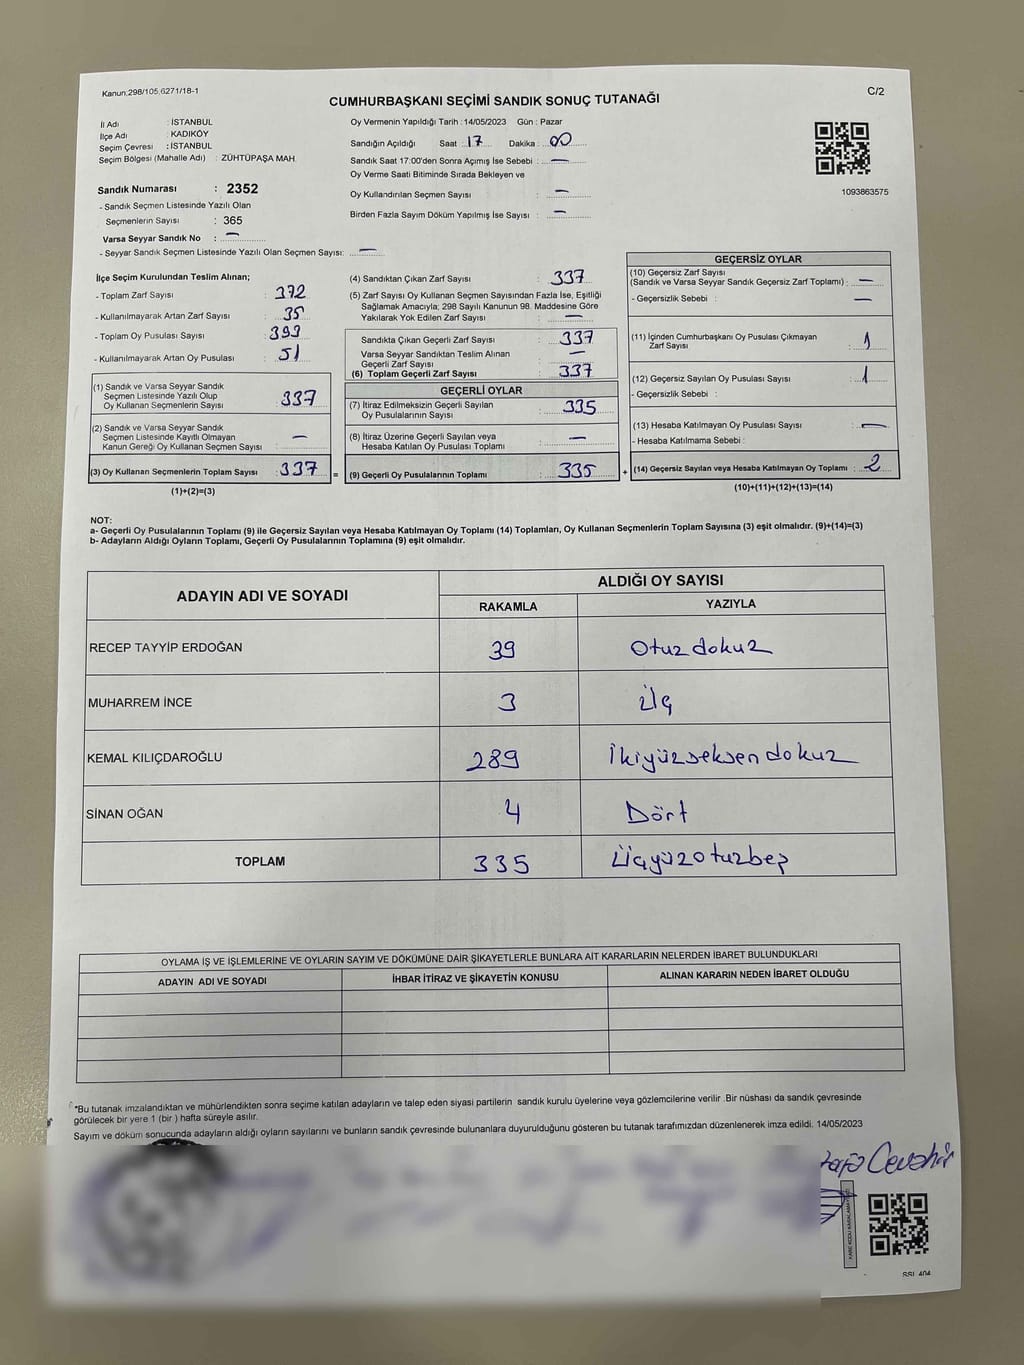 Kanun;298/105,6271/18-1
CUMHURBAŞKANI SEÇİMİ SANDIK SONUÇ TUTANAĞI
C/2
İl Adı : İSTANBUL
İlçe Adı : KADIKÖY
Seçim Çevresi : İSTANBUL
Seçim Bölgesi (Mahalle Adı) : ZÜHTÜPAŞA MAH.
Sandık Numarası : 2352
- Sandık Seçmen Listesinde Yazılı Olan
Seçmenlerin Sayısı : 365
Varsa Seyyar Sandık No : —
- Seyyar Sandık Seçmen Listesinde Yazılı Olan Seçmen Sayısı: —
Oy Vermenin Yapıldığı Tarih : 14/05/2023 Gün : Pazar
Sandığın Açıldığı Saat 17 Dakika : 00
Sandık Saat 17:00'den Sonra Açımış İse Sebebi : —
Oy Verme Saati Bitiminde Sırada Bekleyen ve
Oy Kullandırılan Seçmen Sayısı : —
Birden Fazla Sayım Döküm Yapılmış İse Sayısı : —
1093863575
İlçe Seçim Kurulundan Teslim Alınan;
- Toplam Zarf Sayısı : 372
- Kullanılmayarak Artan Zarf Sayısı : 35
- Toplam Oy Pusulası Sayısı : 393
- Kullanılmayarak Artan Oy Pusulası : 51
(1) Sandık ve Varsa Seyyar Sandık
Seçmen Listesinde Yazılı Olup
Oy Kullanan Seçmenlerin Sayısı : 337
(2) Sandık ve Varsa Seyyar Sandık
Seçmen Listesinde Kayıtlı Olmayan
Kanun Gereği Oy Kullanan Seçmen Sayısı : —
(3) Oy Kullanan Seçmenlerin Toplam Sayısı : 337 =
(1)+(2)=(3)
(4) Sandıktan Çıkan Zarf Sayısı : 337
(5) Zarf Sayısı Oy Kullanan Seçmen Sayısından Fazla İse, Eşitliği
Sağlamak Amacıyla; 298 Sayılı Kanunun 98. Maddesine Göre
Yakılarak Yok Edilen Zarf Sayısı : —
Sandıkta Çıkan Geçerli Zarf Sayısı : 337
Varsa Seyyar Sandıktan Teslim Alınan
Geçerli Zarf Sayısı : —
(6) Toplam Geçerli Zarf Sayısı : 337
GEÇERLİ OYLAR
(7) İtiraz Edilmeksizin Geçerli Sayılan
Oy Pusulalarının Sayısı : 335
(8) İtiraz Üzerine Geçerli Sayılan veya
Hesaba Katılan Oy Pusulaları Toplamı : —
(9) Geçerli Oy Pusulalarının Toplamı : 335 +
GEÇERSİZ OYLAR
(10) Geçersiz Zarf Sayısı
(Sandık ve Varsa Seyyar Sandık Geçersiz Zarf Toplamı) : —
- Geçersizlik Sebebi : —
(11) İçinden Cumhurbaşkanı Oy Pusulası Çıkmayan
Zarf Sayısı : 1
(12) Geçersiz Sayılan Oy Pusulası Sayısı : 1
- Geçersizlik Sebebi :
(13) Hesaba Katılmayan Oy Pusulası Sayısı : —
- Hesaba Katılmama Sebebi :
(14) Geçersiz Sayılan veya Hesaba Katılmayan Oy Toplamı : 2
(10)+(11)+(12)+(13)=(14)
NOT:
a- Geçerli Oy Pusulalarının Toplamı (9) ile Geçersiz Sayılan veya Hesaba Katılmayan Oy Toplamı (14) Toplamları, Oy Kullanan Seçmenlerin Toplam Sayısına (3) eşit olmalıdır. (9)+(14)=(3)
b- Adayların Aldığı Oyların Toplamı, Geçerli Oy Pusulalarının Toplamına (9) eşit olmalıdır.
ADAYIN ADI VE SOYADI
ALDIĞI OY SAYISI
RAKAMLA YAZIYLA
RECEP TAYYİP ERDOĞAN 39 Otuzdokuz
MUHARREM İNCE 3 Üç
KEMAL KILIÇDAROĞLU 289 İkiyüzseksendokuz
SİNAN OĞAN 4 Dört
TOPLAM 335 Üçyüzotuzbeş
OYLAMA İŞ VE İŞLEMLERİNE VE OYLARIN SAYIM VE DÖKÜMÜNE DAİR ŞİKAYETLERLE BUNLARA AİT KARARLARIN NELERDEN İBARET BULUNDUKLARI
ADAYIN ADI VE SOYADI İHBAR İTİRAZ VE ŞİKAYETİN KONUSU ALINAN KARARIN NEDEN İBARET OLDUĞU
*Bu tutanak imzalandıktan ve mühürlendikten sonra seçime katılan adayların ve talep eden siyasi partilerin sandık kurulu üyelerine veya gözlemcilerine verilir .Bir nüshası da sandık çevresinde
görülecek bir yere 1 (bir ) hafta süreyle asılır.
Sayım ve döküm sonucunda adayların aldığı oyların sayılarını ve bunların sandık çevresinde bulunanlara duyurulduğunu gösteren bu tutanak tarafımızdan düzenlenerek imza edildi. 14/05/2023
Cevahir